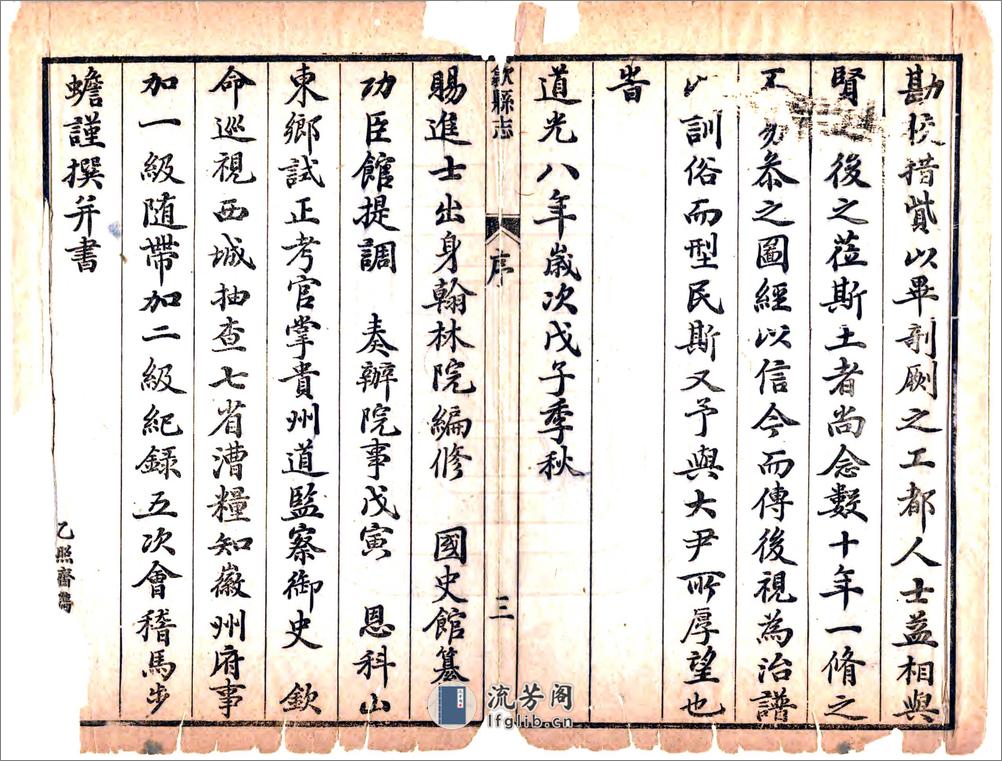 勘校措貲以畢剞劂之工都人士益相與
賢 後之蒞斯土者尚念數十年一脩之
不易忝之圖經以信今而傳後視為治譜
訓俗而型民斯又予與大尹所厚望也
旹
道光八年歲次戊子季秋
歙縣志
序
三
賜進士出身翰林院編修 國史館纂
功臣館提調 奏辦院事戊寅 恩科山
東鄉試正考官掌貴州道監察御史 欽
命巡視西城抽查七省漕糧知徽州府事
加一級隨帶加二級紀錄五次會稽馬步
蟾謹撰并書
乙照齋
流芳阁
lfglib.cn